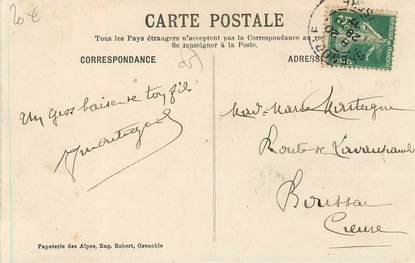 20€
CARTE POSTALE
Tous les Pays étrangers n'acceptent pas la Correspondance au
Se renseigner à la Poste.
CORRESPONDANCE
ADRESSE
Un Gros baiser de ton fils
Montagne
Mad. Marie Montagne
Route de
Boussac
Creuse
Papeterie des Alpes, Eug. Robert, Grenoble